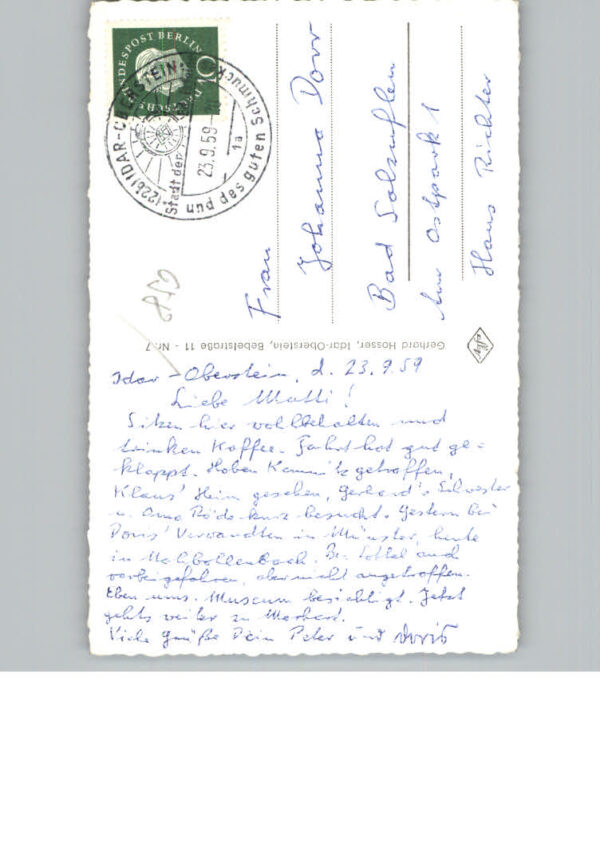 DEUTSCHE BUNDESPOST BERLIN
10
(22b) IDAR-OBERSTEIN
Stadt der
und des guten Schmucks
23.9.59
1a
Frau
Johanna Dorr
Bad Salzuflen
Am Ostpark 1
Haus Richter
Gerhard Hosser, Idar-Oberstein, Bebelstraße 11 - Nr. 7
Agfa
Idar-Oberstein, d. 23.9.59
Liebe Mutti!
Sitzen hier wohlbehalten und
trinken Kaffee. Fahrt hat gut ge-
klappt. Haben getroffen,
Klaus' Heim gesehen, Gerhard's Schwester
u. Oma kurz besucht. Gestern bei
Doris' Verwandten in Münster, heute
in Bei auch
vorbeigefahren, aber nicht angetroffen.
Eben uns. Museum besichtigt. Jetzt
gehts weiter zu
Viele Grüße Dein Peter und Doris